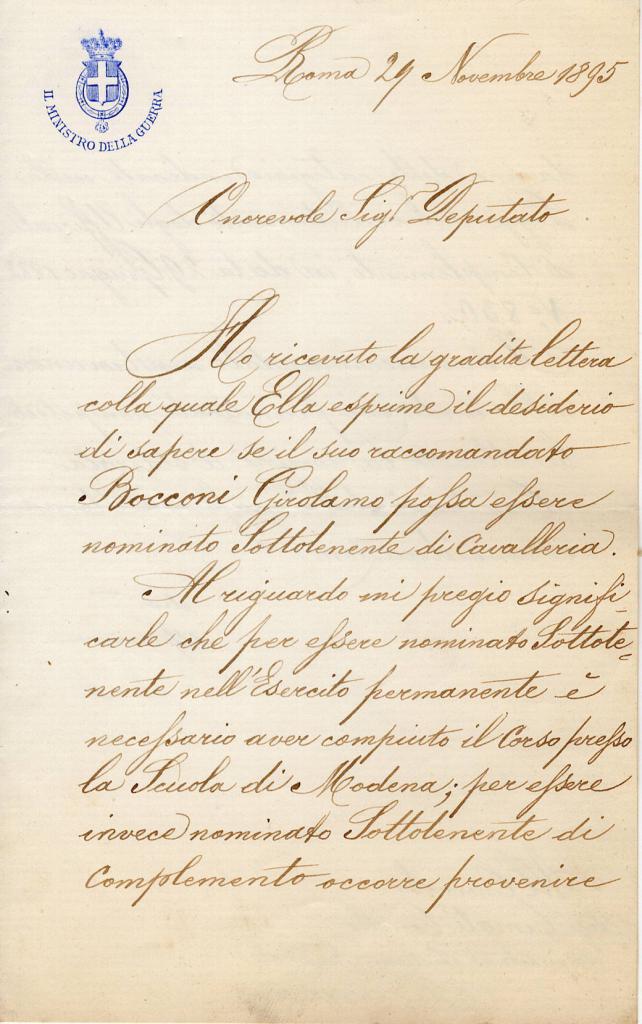 IL MINISTRO DELLA GUERRA
Roma 29 Novembre 1895
Onorevole Sigr Deputato
Ho ricevuto la gradita lettera
colla quale Ella esprime il desiderio
di sapere se il suo raccomandato
Bocconi Girolamo possa essere
nominato Sottotenente di Cavalleria.
Al riguardo mi pregio signifi-
carle che per essere nominato Sottote-
nente nell'Esercito permanente è
necessario aver compiuto il Corso presso
la Scuola di Modena; per essere
invece nominato Sottotenente di
Complemento occorre provenire